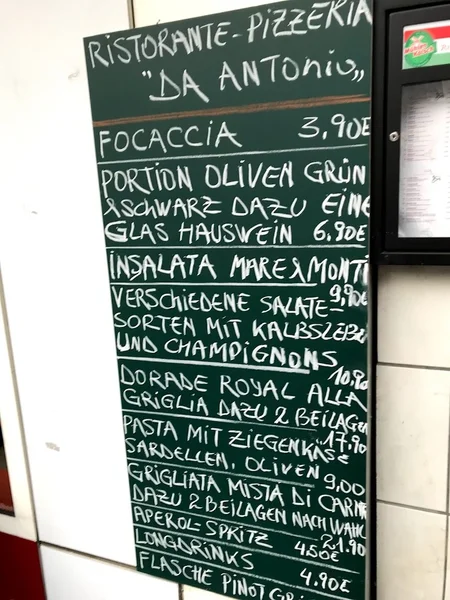 RISTORANTE-PIZZERIA
"DA ANTONIO„
FOCACCIA 3,90E
PORTION OLIVEN GRÜN
&SCHWARZ DAZU EINE
GLAS HAUSWEIN 6.90E
INSALATA MARE&MONTI
9,90E
VERSCHIEDENE SALATE-
SORTEN MIT KALBSLEBE
UND CHAMPIGNONS
10,90
DORADE ROYAL ALLA
GRIGLIA DAZU 2 BEILAGEN
17,90
PASTA MIT ZIEGENKÄSE
SARDELLEN, OLIVEN
9,00
GRIGLIATA MISTA DI CARNE
DAZU 2 BEILAGEN NACH WAHL
21.90
APEROL-SPRITZ 4,50E
LONGDRINKS 4.90E
FLASCHE PINOT GRI